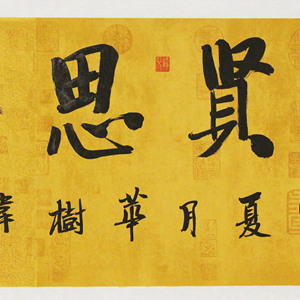 贤思
夏月華樹